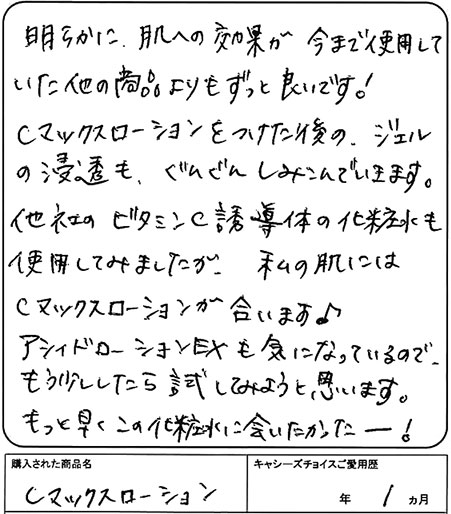 明らかに、肌への効果が今まで使用して
いた他の商品よりもずっと良いです!
Cマックスローションをつけた後の、ジェル
の浸透も、ぐんぐんしみこんでいきます。
他社のビタミンC誘導体の化粧水も
使用してみましたが、私の肌には
Cマックスローションが合います♪
アシィドローションEXも気になっているので、
もう少ししたら試してみようと思います。
もっと早くこの化粧水に会いたかったー!
購入された商品名 キャシーズチョイスご愛用歴
Cマックスローション 年 1 ヵ月